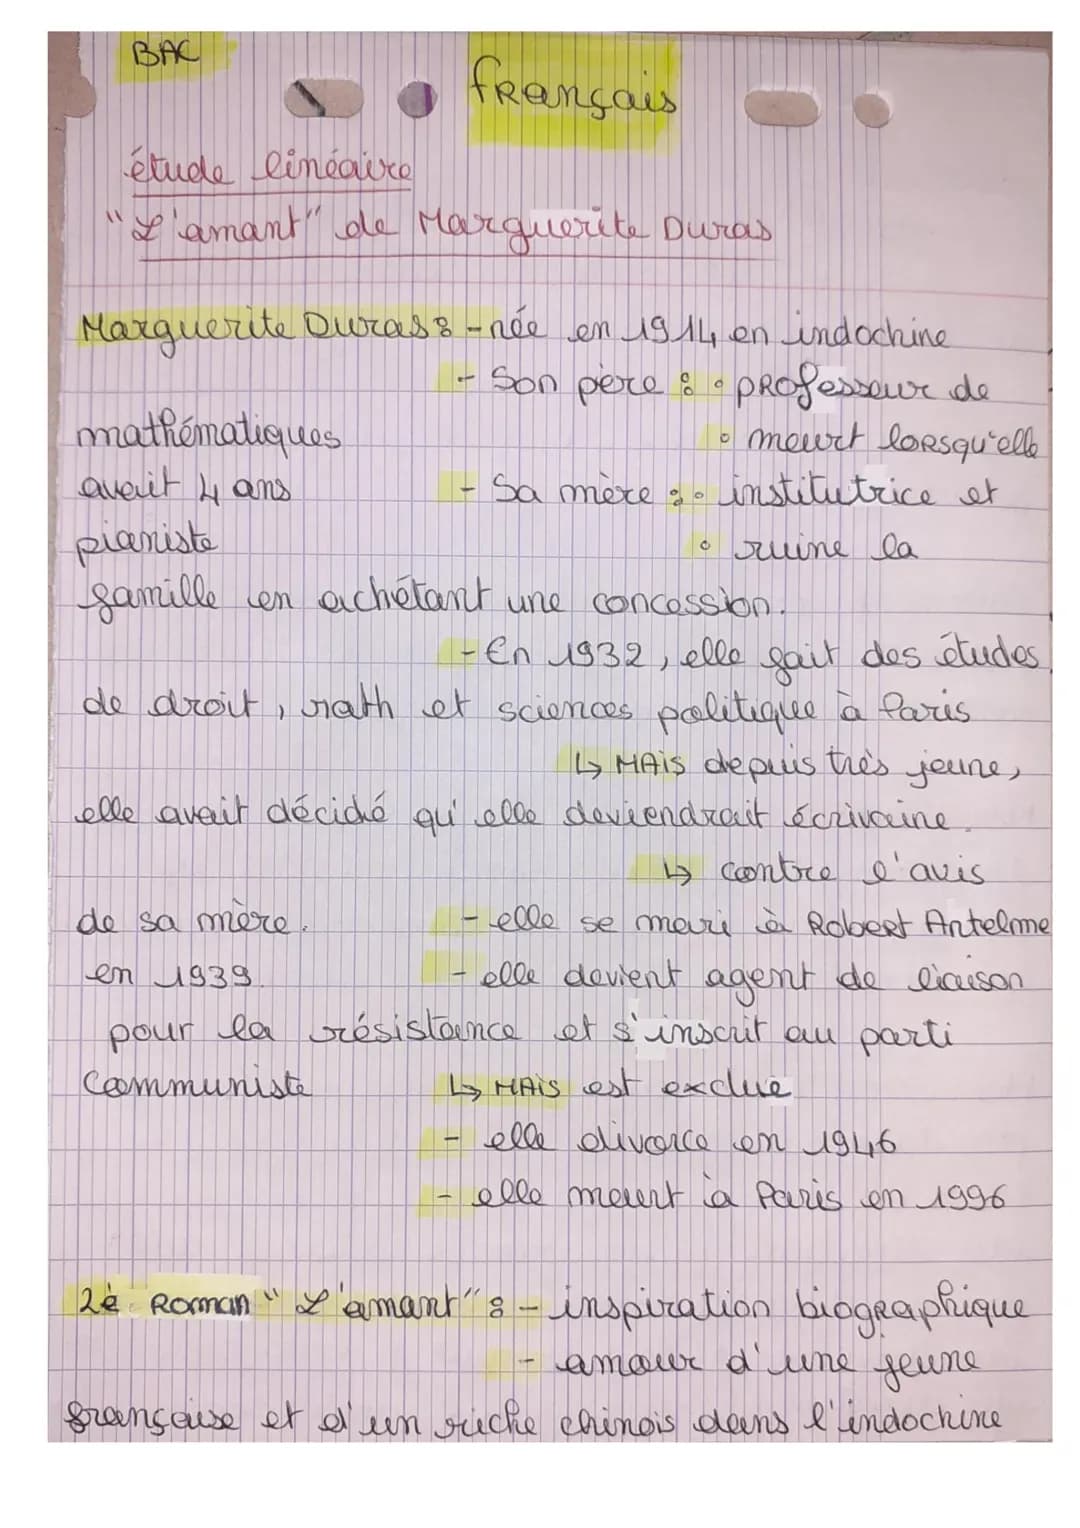 BAC
français
étude linéaire
"L'amant" de Marguerite Duras
Marguerite Duras : - née en 1914 en indochine
- Son père : ° professeur de
mathématiques ° meurt lorsqu'elle
avait 4 ans - Sa mère : ° institutrice et
pianiste ° ruine la
famille en achétant une concession.
- En 1932, elle fait des études
de droit, math et sciences politique à Paris
↳ MAis depuis très jeune,
elle avait décidé qu'elle deviendrait écrivaine.
↳ contre l'avis
de sa mère. - elle se mari à Robert Antelme
en 1939. - elle devient agent de liaison
pour la résistance et s'inscrit au parti
Communiste ↳ MAis est exclue
- elle divorce en 1946
- elle meurt à Paris en 1996
2è Roman "L'amant" : - inspiration biographique
- amour d'une jeune
française et d'un riche chinois dans l'indochine